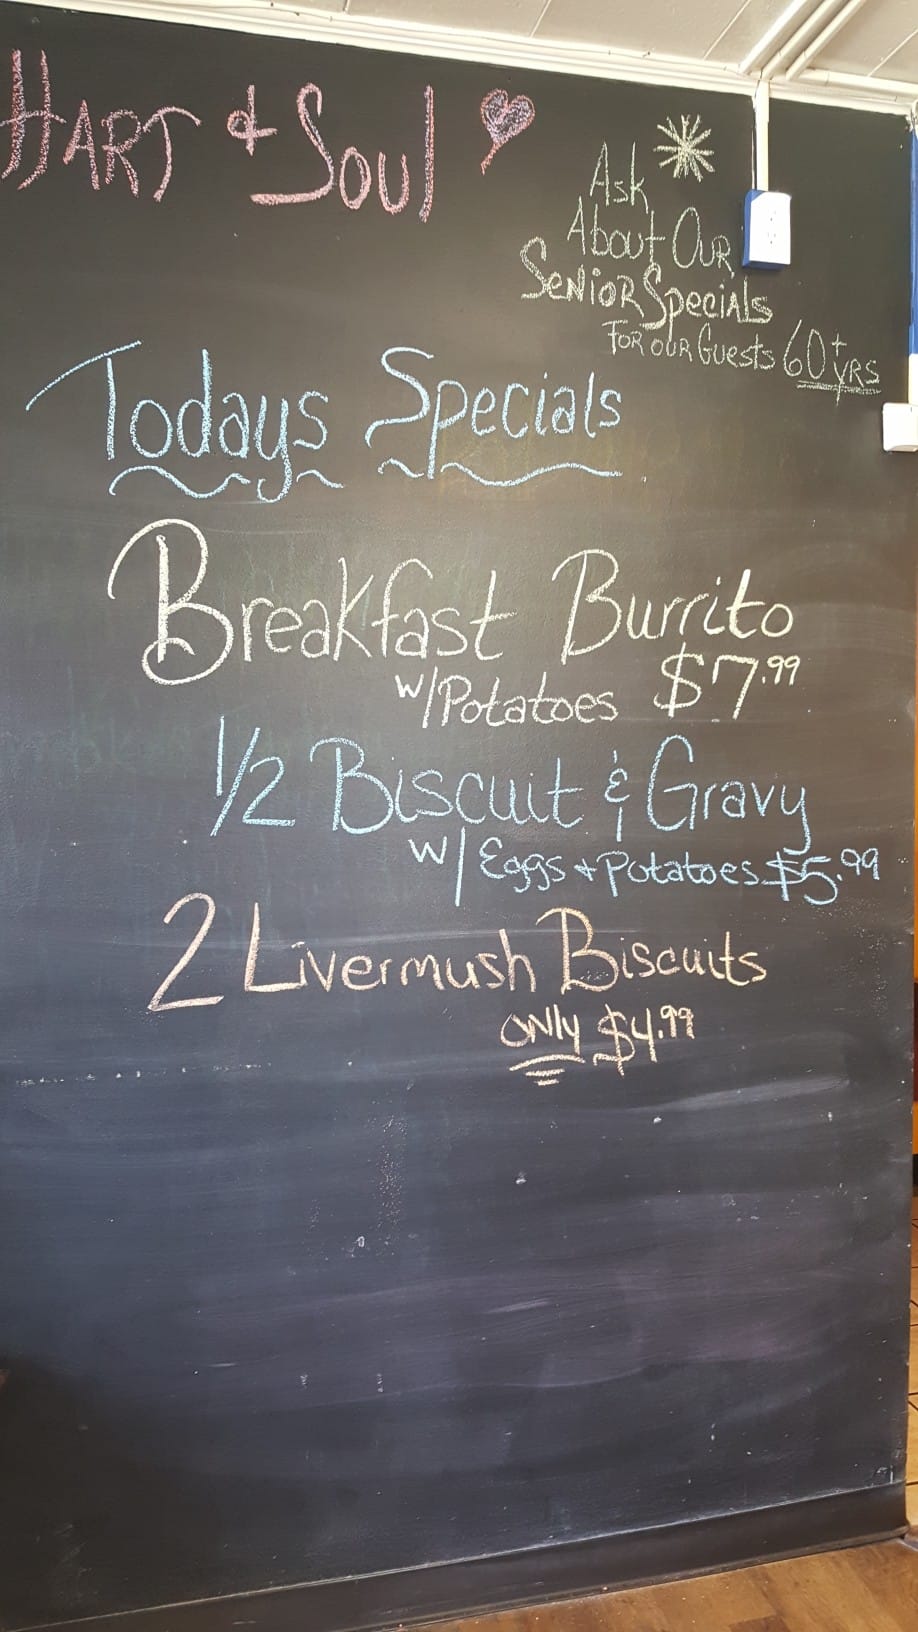 HART & Soul
Ask
About Our
Senior Specials
For our Guests 60+ yrs
Todays Specials
Breakfast Burrito
w/Potatoes $7.99
1/2 Biscuit & Gravy
w/ Eggs + Potatoes $5.99
2 Livermush Biscuits
only $4.99